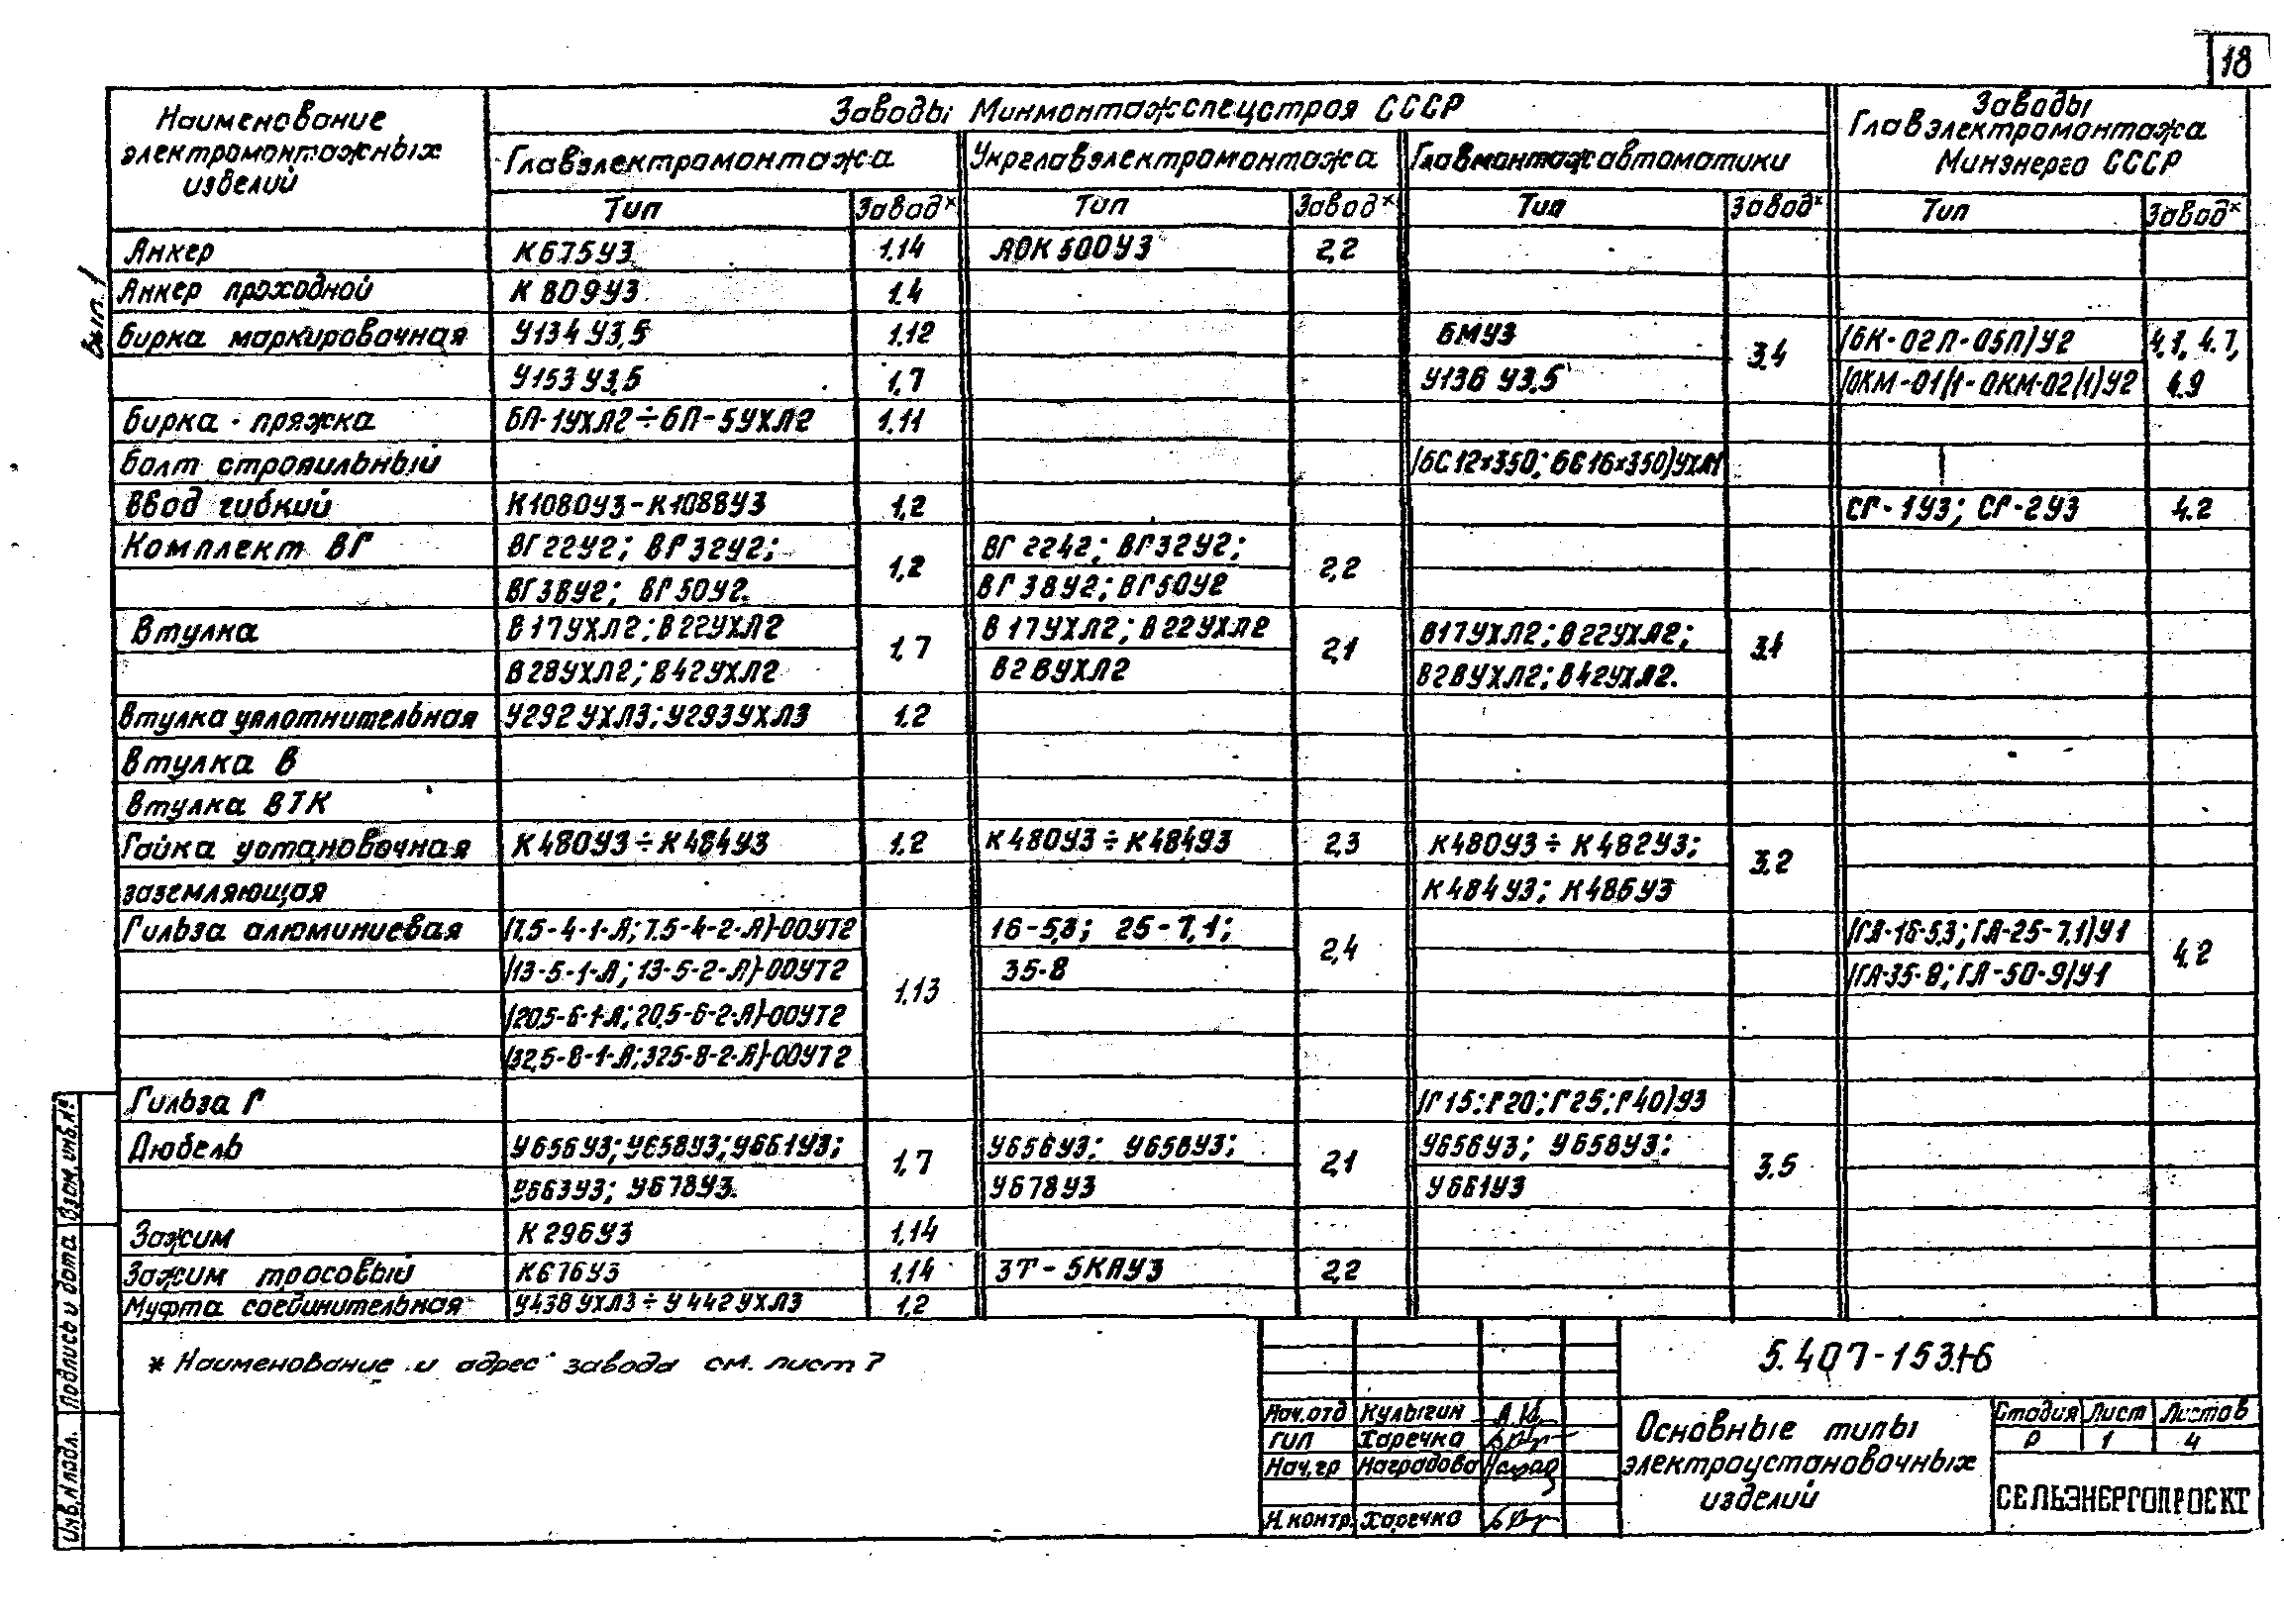 18
Вып. 1
Наименование электромонтажных изделий
Заводы Минмонтажспецстроя СССР
Заводы Главэлектромонтажа Минэнерго СССР
Главэлектромонтажа Укрглавэлектромонтажа Главмонтажавтоматики
Тип Завод* Тип Завод* Тип Завод* Тип Завод*
Анкер К675У3 1.14 АОК500У3 2,2
Анкер проходной К809У3 1.4
Бирка маркировочная У134У3,5 1.12 БМУ3 3.4 (БК-02П-05П)У2 4.1, 4.7,
У153У3,5 1,7 У136 У3,5 (ОКМ-01/1-ОКМ-02/1)У2 4.9
Бирка-пряжка БП-1УХЛ2÷БП-5УХЛ2 1.11
Болт строяильный (БС12×350; БС16×350)УХЛ1
Ввод гибкий К1080У3-К1088У3 1,2 СГ-1У3; СГ-2У3 4.2
Комплект ВГ ВГ22У2; ВГ32У2; 1,2 ВГ2242; ВГ32У2; 2,2
ВГ38У2; ВГ50У2. ВГ38У2; ВГ50У2
Втулка В17УХЛ2; В22УХЛ2 1,7 В17УХЛ2; В22УХЛ2 2,1 В17УХЛ2; В22УХЛ2; 3.1
В28УХЛ2; В42УХЛ2 В28УХЛ2 В28УХЛ2; В42УХЛ2.
Втулка уплотнительная У292УХЛ3; У293УХЛ3 1.2
Втулка В
Втулка ВТК
Гайка установочная К480У3÷К484У3 1.2 К480У3÷К484У3 2,3 К480У3÷К482У3; 3,2
заземляющая К484У3; К486У3
Гильза алюминиевая (7,5-4-1-А; 7.5-4-2-А)-00УТ2 1.13 16-5,3; 25-7,1; 2,4 (ГА-16-5,3; ГА-25-7,1)У1 4.2
(13-5-1-А; 13-5-2-А)-00УТ2 35-8 (ГА-35-8; ГА-50-9)У1
(20,5-6-1-А; 20,5-6-2-А)-00УТ2
(32,5-8-1-А; 32,5-8-2-А)-00УТ2
Гильза Г (Г15; Г20; Г25; Г40)У3
Дюбель У656У3; У658У3; У661У3; 1,7 У656У3; У658У3; 2,1 У656У3; У658У3; 3,5
У663У3; У678У3. У678У3 У661У3
Зажим К296У3 1.14
Зажим тросовый К676У3 1.14 ЗТ-5КАУ3 2,2
Муфта соединительная У438УХЛ3÷У442УХЛ3 1,2
* Наименование и адрес завода см. лист 7
5.407-153.1-6
Нач.отд Кулыгин
ГИП Харечко
Нач.гр Наградова
Н.контр. Харечко
Основные типы
электроустановочных
изделий
Стадия Лист Листов
Р 1 4
СЕЛЬЭНЕРГОПРОЕКТ
Взам.инв.№
Подпись и дата
Инв.№подл.